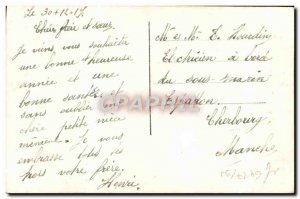 Le 30-12-17
Cher frère et sœur
Je viens vous souhaiter
une bonne et heureuse
année et une
bonne santé et
sans oublier
chère petite nièce
même. Je vous
embrasse tous
votre frère,
Henri
M et Mme E. Hourdin
à bord
du sous-marin
Espadon.
Cherbourg
Manche